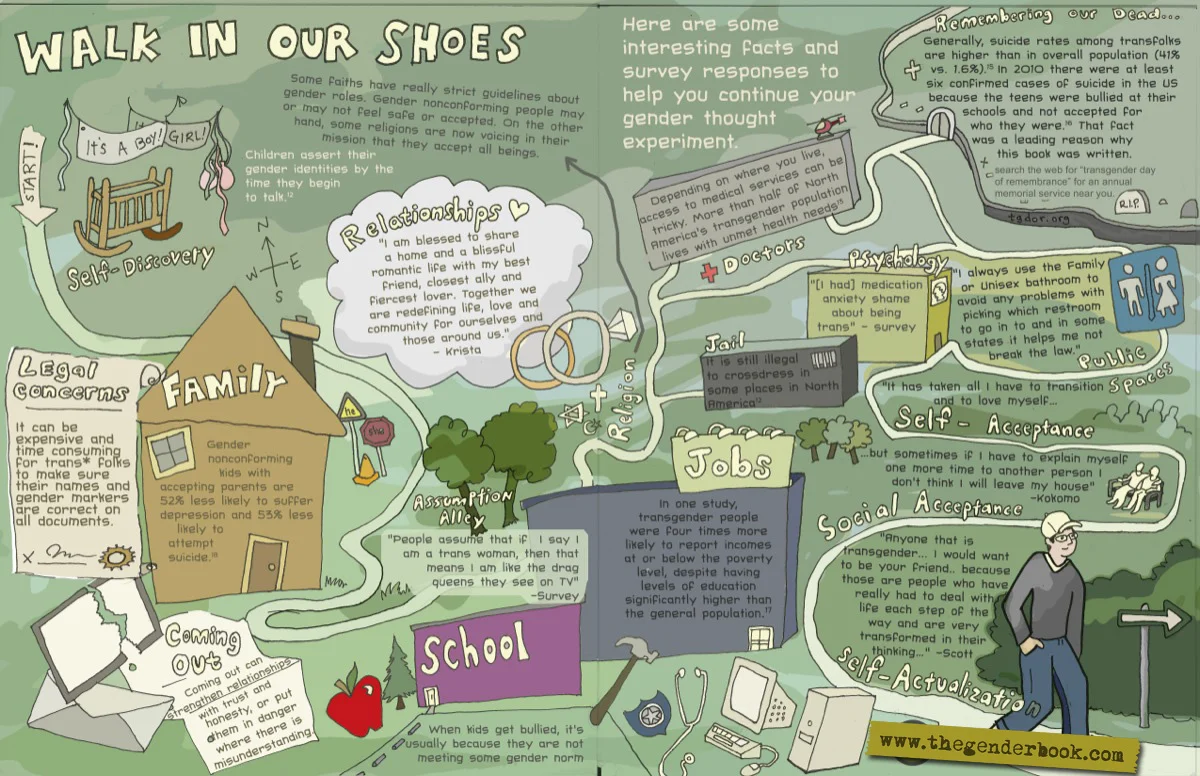 WALK IN OUR SHOES
START!
It's A Boy! GIRL!
Self-Discovery
Some faiths have really strict guidelines about
gender roles. Gender nonconforming people may
or may not feel safe or accepted. On the other
hand, some religions are now voicing in their
mission that they accept all beings.
Children assert their
gender identities by the
time they begin
to talk.12
N
W E
S
Relationships
"I am blessed to share
a home and a blissful
romantic life with my best
friend, closest ally and
fiercest lover. Together we
are redefining life, love and
community for ourselves and
those around us."
- Krista
Legal
Concerns
It can be
expensive and
time consuming
for trans* folks
to make sure
their names and
gender markers
are correct on
all documents.
X
FAMILY
Gender
nonconforming
kids with
accepting parents are
52% less likely to suffer
depression and 53% less
likely to
attempt
suicide.18
he
Assumption
Alley
"People assume that if I say I
am a trans woman, then that
means I am like the drag
queens they see on TV"
-Survey
Coming
Out
Coming out can
strengthen relationships
with trust and
honesty, or put
them in danger
where there is
misunderstanding
School
When kids get bullied, it's
usually because they are not
meeting some gender norm
Here are some
interesting facts and
survey responses to
help you continue your
gender thought
experiment.
Religion
Depending on where you live,
access to medical services can be
tricky. More than half of North
America's transgender population
lives with unmet health needs"
Doctors
Remembering our Dead...
Generally, suicide rates among transfolks
are higher than in overall population (41%
vs. 1.6%).15 In 2010 there were at least
six confirmed cases of suicide in the US
because the teens were bullied at their
schools and not accepted for
who they were.16 That fact
was a leading reason why
this book was written.
search the web for "transgender day
of remembrance" for an annual
memorial service near you.
R.I.P.
tgdor.org
Psychology
"[I had] medication
anxiety shame
about being
trans" - survey
"I always use the Family
or Unisex bathroom to
avoid any problems with
picking which restroom
to go in to and in some
states it helps me not
break the law."
Public
Spaces
Jail
It is still illegal
to crossdress in
some places in North
America13
Jobs
In one study,
transgender people
were four times more
likely to report incomes
at or below the poverty
level, despite having
levels of education
significantly higher than
the general population.17
"It has taken all I have to transition
and to love myself...
Self - Acceptance
...but sometimes if I have to explain myself
one more time to another person I
don't think I will leave my house"
-Kokomo
Social Acceptance
"Anyone that is
transgender... I would want
to be your friend... because
those are people who have
really had to deal with
life each step of the
way and are very
transformed in their
thinking..." -Scott
Self-Actualization
www.thegenderbook.com